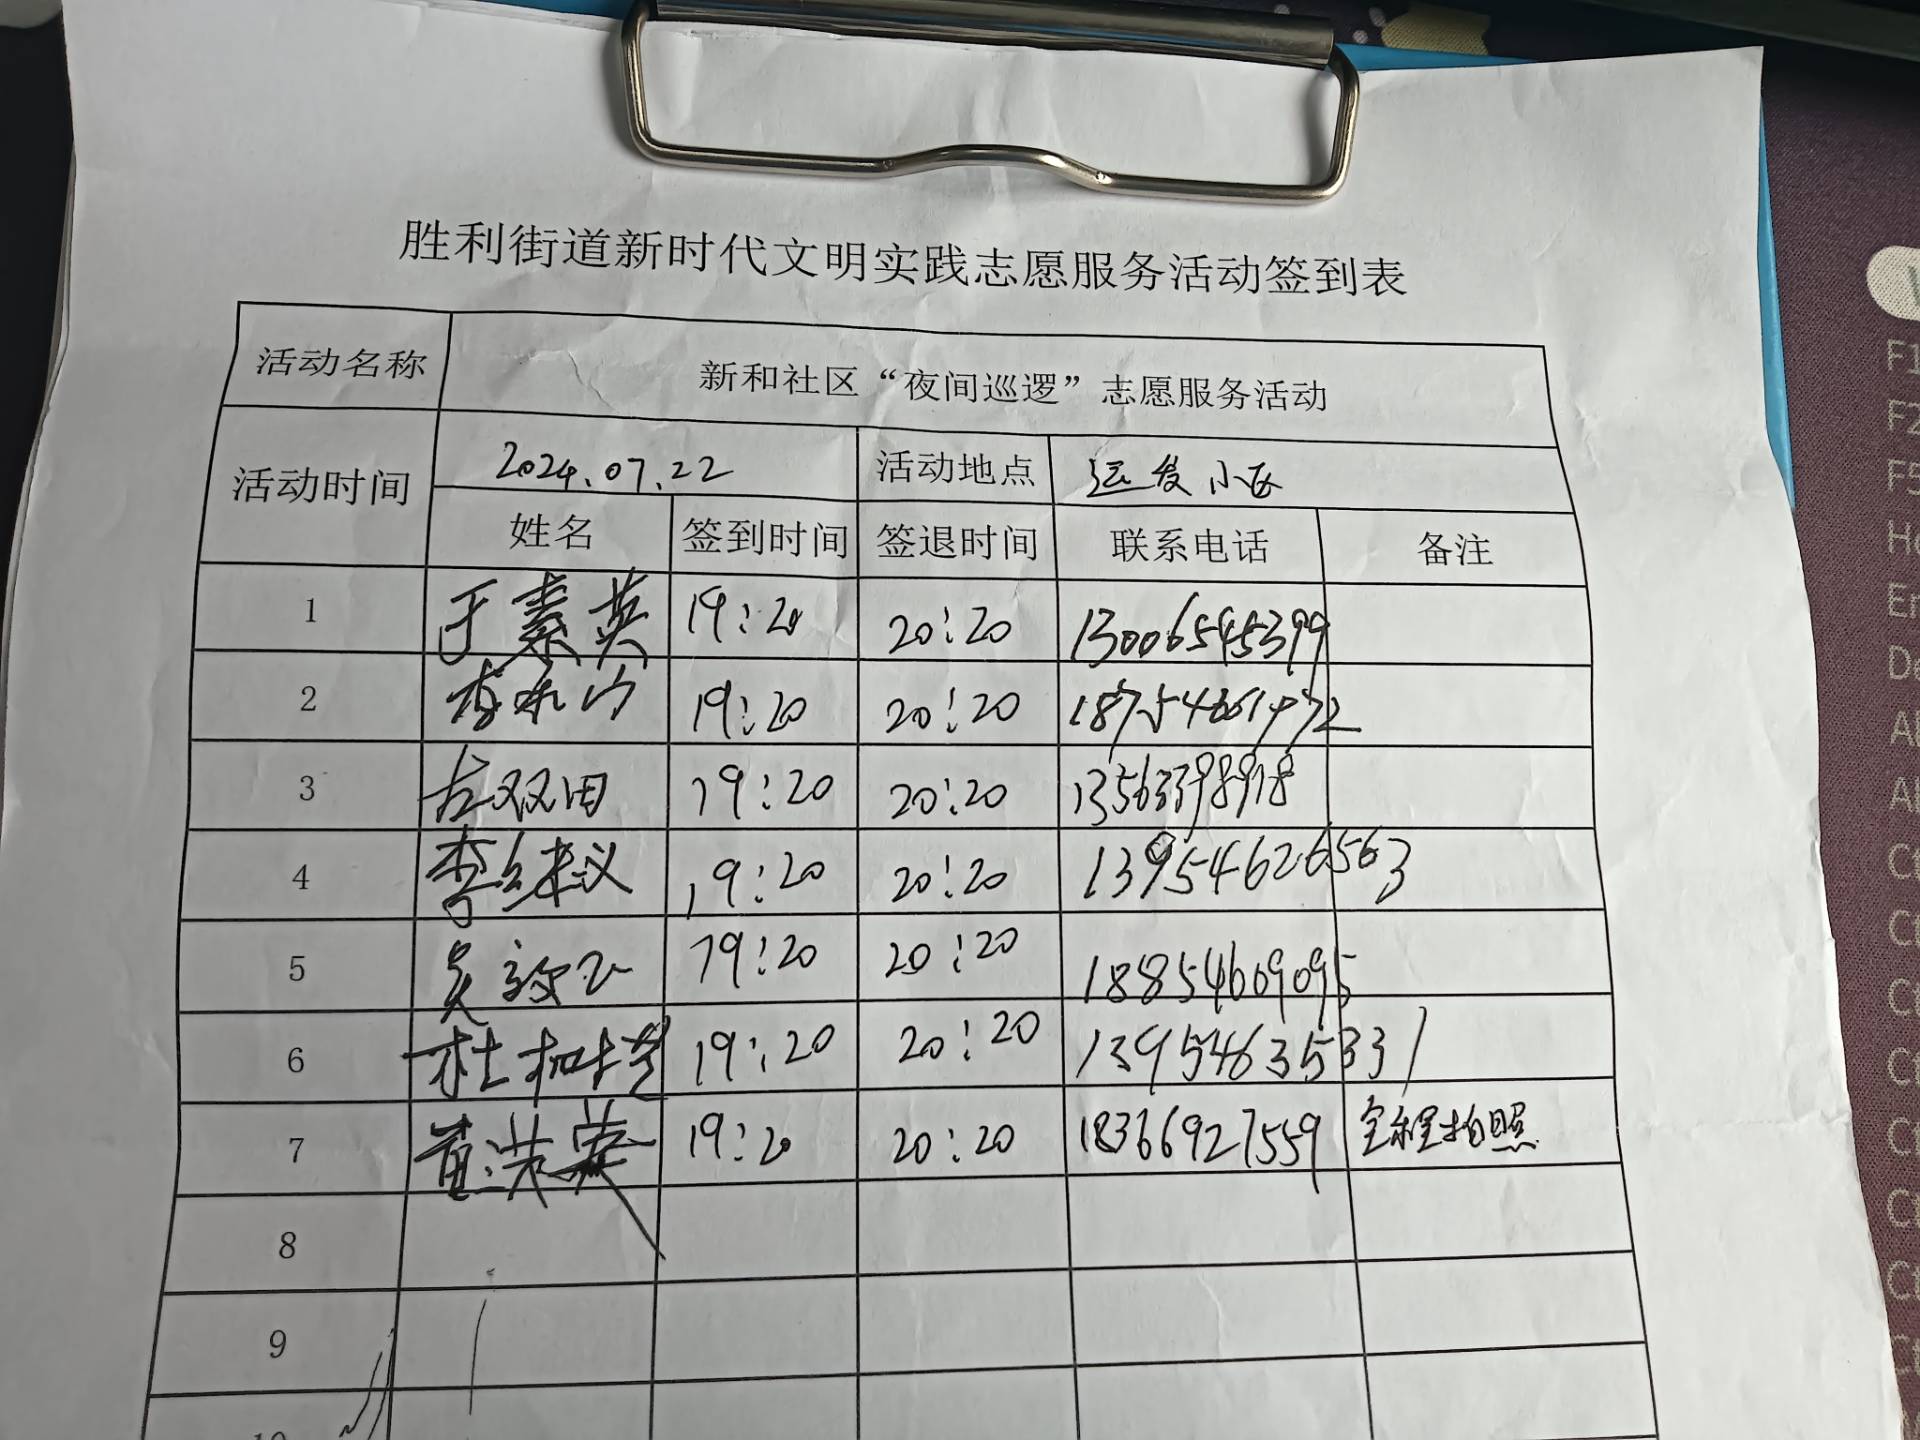 胜利街道新时代文明实践志愿服务活动签到表
活动名称 新和社区“夜间巡逻”志愿服务活动
活动时间 2024.07.22 活动地点 运发小区
姓名 签到时间 签退时间 联系电话 备注
1 于素英 19:20 20:20 13006545399
2 19:20 20:20
3 左双田 19:20 20:20 13563398918
4 19:20 20:20 13954626563
5 19:20 20:20 18854609095
6 19:20 20:20 13954635331
7 黄洪荣 19:20 20:20 18366927559 全程拍照
8
9
10